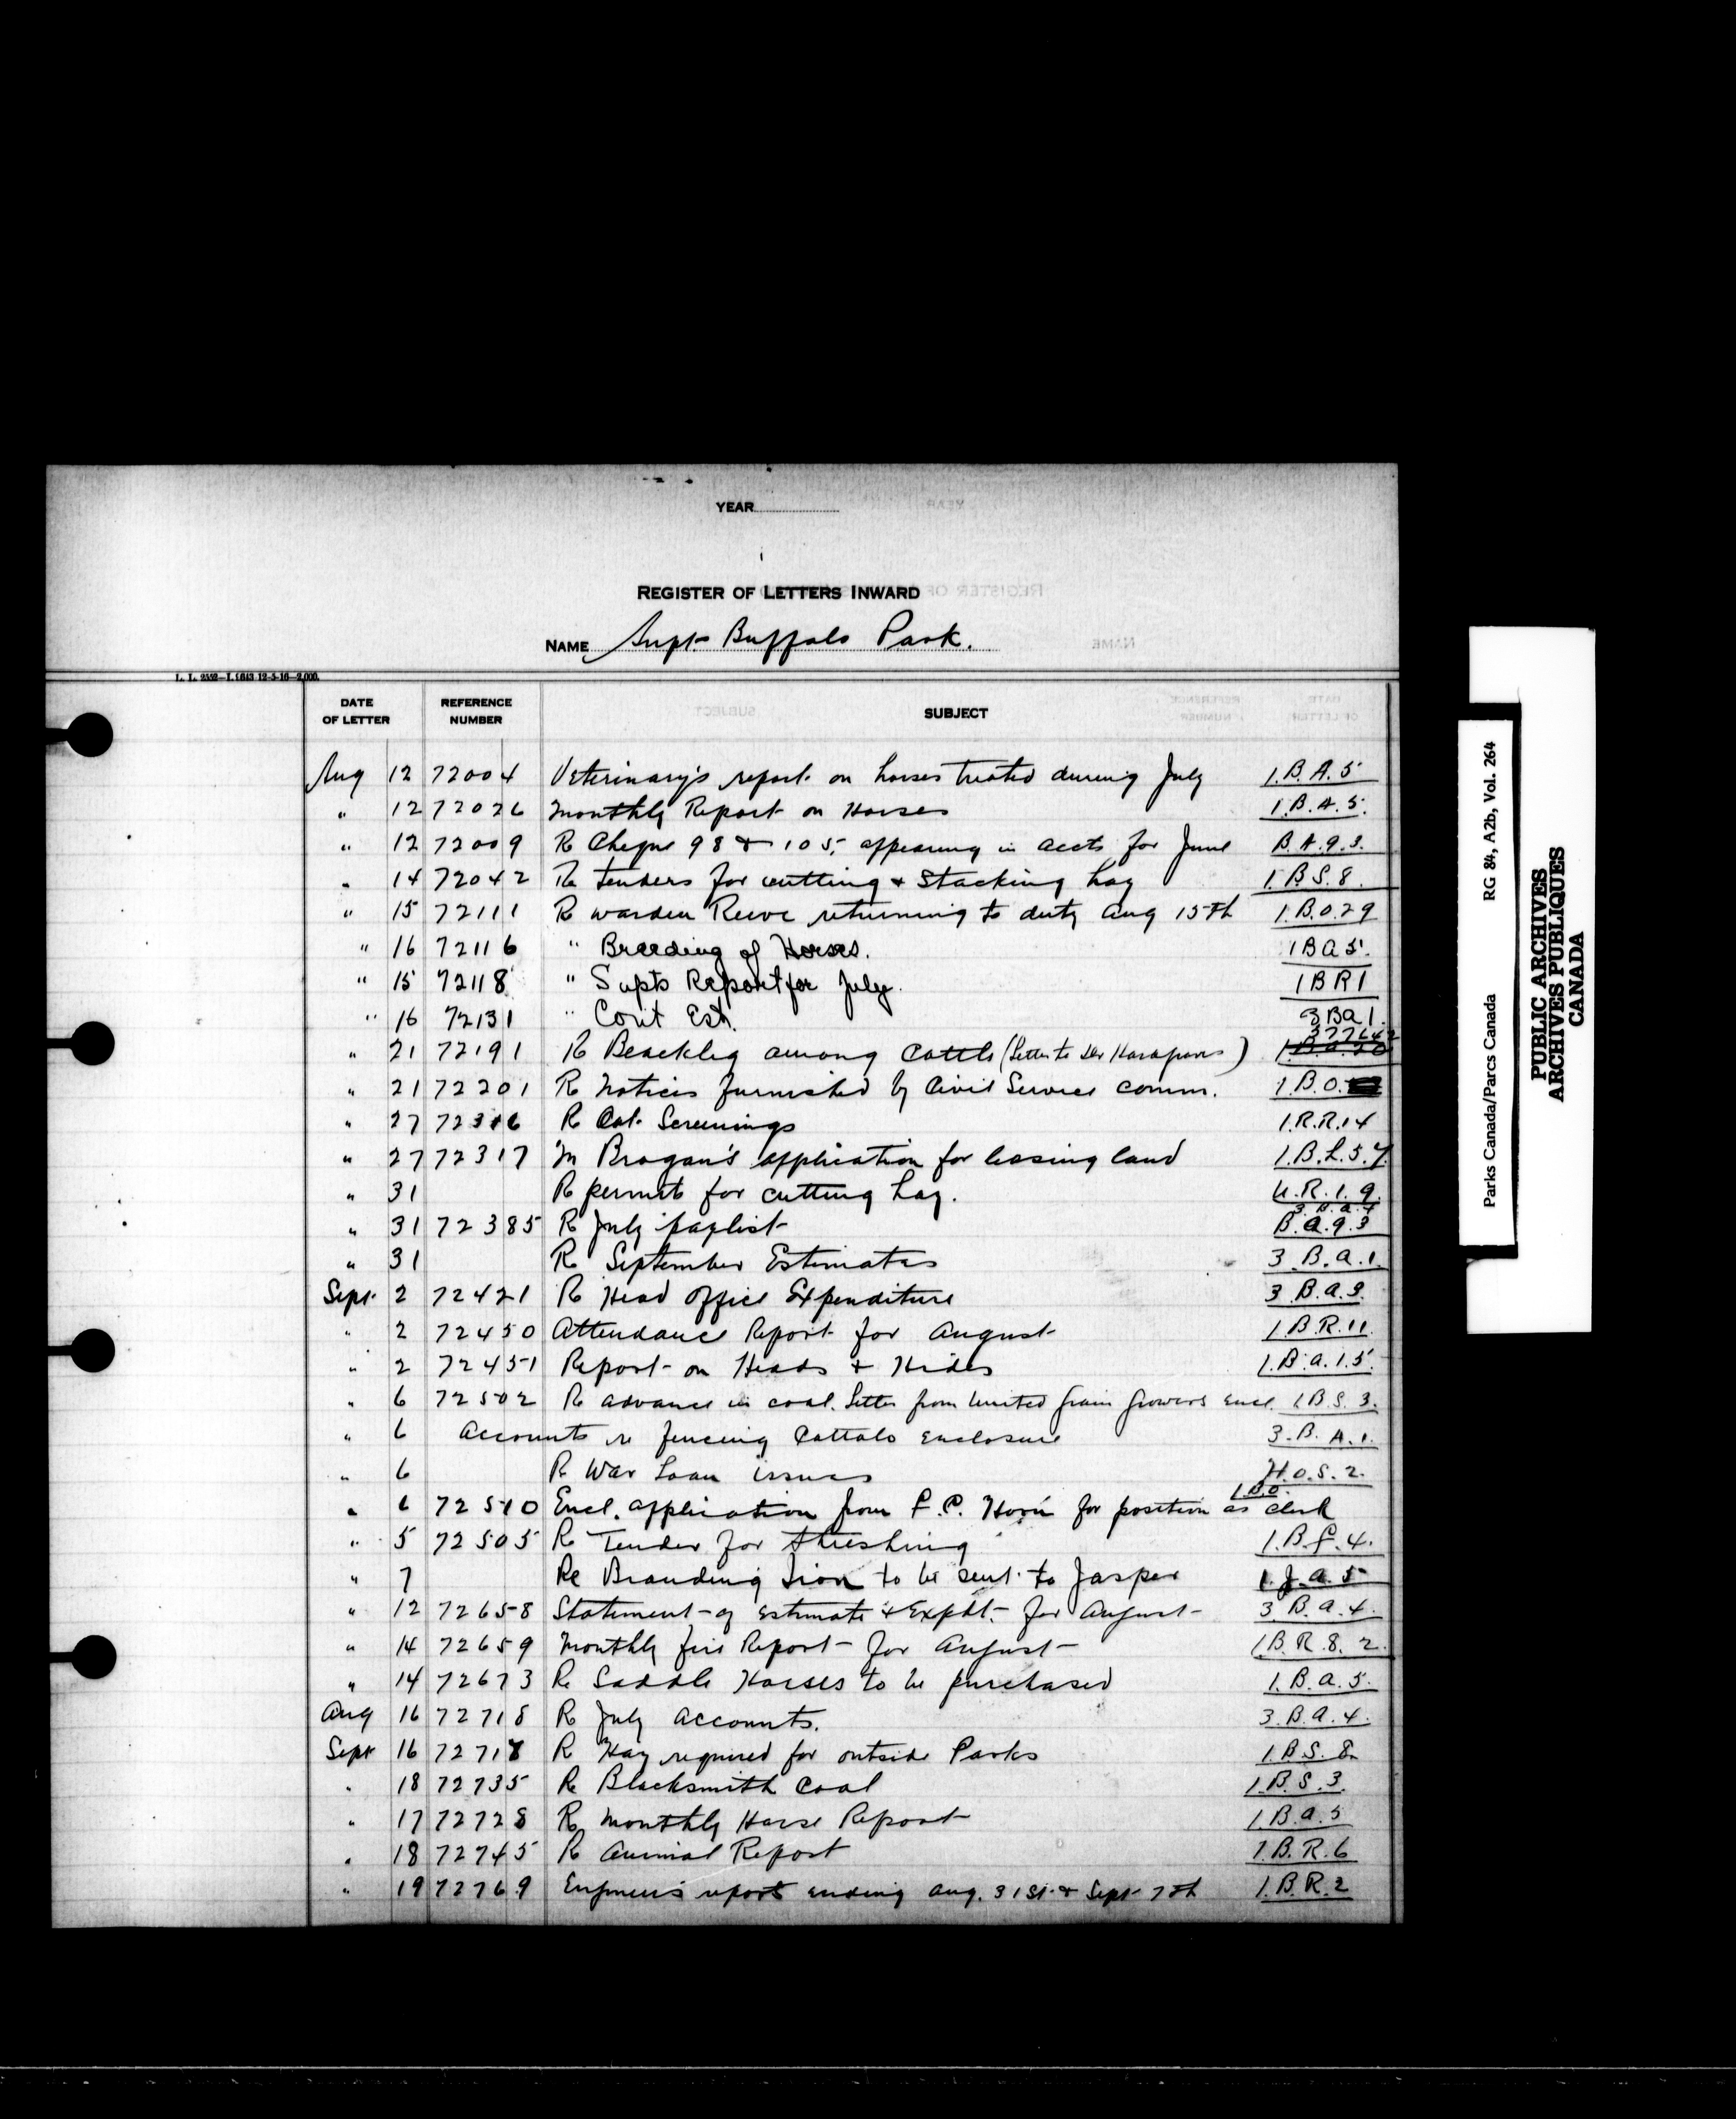 YEAR
REGISTER OF LETTERS INWARD
NAME Supt Buffalo Park.
L. L. 2552—I. 1643 12-5-16—2,000.
DATE OF LETTER REFERENCE NUMBER SUBJECT
Aug 12 72004 Veterinary's report on horses treated during July 1.B.A.5
" 12 72026 Monthly Report on Horses 1.B.A.5.
" 12 72009 R Cheque 98 & 105, appearing in accts for June B.A.9.3.
" 14 72042 R Tenders for cutting & Stacking hay 1.B.S.8.
" 15 72111 R Warden Reeve returning to duty Aug 15th 1.B.O.29
" 16 72116 " Breeding of Horses. 1 B A 5.
" 15 72118 " Supts Report for July. 1 B R 1
" 16 72131 " Cont Est. 3 B a 1.
" 21 72191 R Blackleg among Cattle (Letter to Dr ) 1.B.a.20
" 21 72201 R Notices furnished by Civil Service Comm. 1.B.O.
" 27 72316 R Oat Screenings 1.R.R.14
" 27 72317 M Brogan's application for leasing land 1.B.L.5.7.
" 31 R permits for cutting hay. U.R.1.9.
3.B.a.4
" 31 72385 R July paylist B.a.9.3
" 31 R September Estimates 3.B.a.1.
Sept 2 72421 R Head Office Expenditure 3 B.a.3.
" 2 72450 Attendance Report for August 1.B.R.11.
" 2 72451 Report on Heads & Hides 1.B.a.15.
" 6 72502 R advance in coal. Letter from United Grain Growers encl. 1.B.S.3.
" 6 Accounts re fencing Cattalo Enclosure 3.B.A.1.
" 6 R War Loan issues H.O.S.2.
1.B.O.
" 6 72510 Encl. application from F.P. Horn for position as clerk
" 5 72505 R Tender for threshing 1.B.F.4.
" 7 Re Branding Iron to be sent to Jasper 1.J.a.5
" 12 72658 Statement of Estimate & Expdt. for August 3.B.a.4.
" 14 72659 Monthly fire Report for August 1.B.R.8.2.
" 14 72673 R Saddle Horses to be purchased 1.B.a.5.
Aug 16 72718 R July accounts. 3.B.a.4.
Sept 16 72718 R Hay required for outside Parks 1.B.S.8.
" 18 72735 R Blacksmith Coal 1.B.S.3.
" 17 72728 R Monthly Horse Report 1.B.a.5
" 18 72745 R Animal Report 1.B.R.6
" 19 72769 Engineer's reports ending Aug. 31st & Sept 7th 1.B.R.2
Parks Canada/Parcs Canada RG 84, A2b, Vol. 264
PUBLIC ARCHIVES
ARCHIVES PUBLIQUES
CANADA